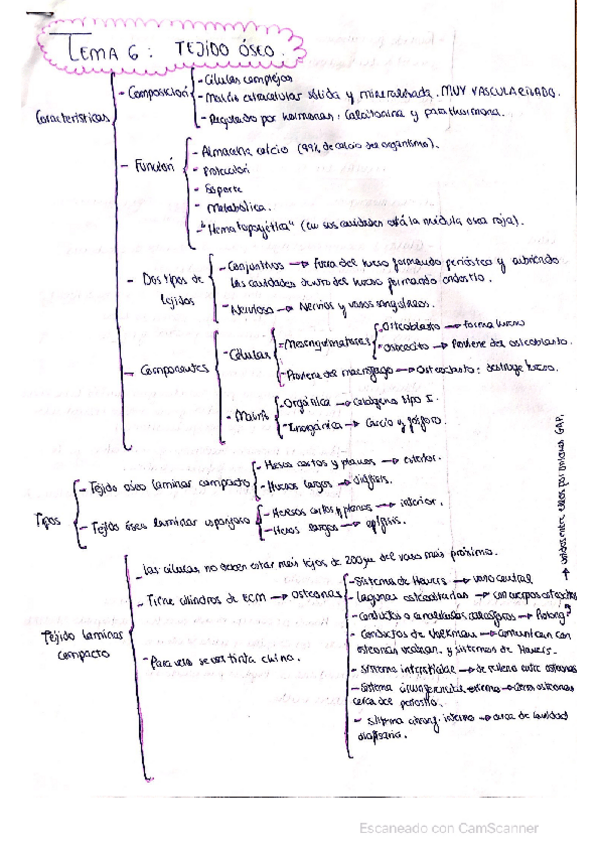 TEMA 6: TEJIDO ÓSEO.
Características
- Composición
- Células complejas
- Matriz extracelular sólida y mineralizada. MUY VASCULARIZADO.
- Regulado por hormonas: Calcitonina y parathormona.
- Función
- Almacena calcio (99% de calcio del organismo).
- Protección
- Soporte
- Metabólica.
"Hematopoyética" (en sus cavidades está la médula ósea roja).
- Dos tipos de tejidos
- Conjuntivos → fuera del hueso formando periostio y cubriendo
las cavidades dentro del hueso formando endostio.
- Nervioso → Nervios y vasos sanguíneos.
- Componentes
- Células
- Mesenquimatosas
- Osteoblasto → forma hueso
- Osteocito → Proviene del osteoblasto.
- Proviene del macrófago → Osteoclasto: destruye hueso.
- Matriz
- Orgánica → Colágeno tipo I.
- Inorgánica → Calcio y fósforo.
Tipos
- Tejido óseo laminar compacto
- Huesos cortos y planos → exterior.
- Huesos largos → diáfisis.
- Tejido óseo laminar esponjoso
- Huesos cortos y planos → interior.
- Huesos largos → epífisis.
Tejido laminar
compacto
- Las células no deben estar más lejos de 200 μm del vaso más próximo.
- Tiene cilindros de ECM → osteonas
- Sistema de Havers → vaso central
- Lagunas osteocitarias → con cuerpos
- Conductos o canalículos calcóforos → Prolong.
→ unidos entre ellos por uniones GAP.
- Conductos de Volkman → Comunican con
osteonas y sistemas de Havers.
- Sistema intersticial → de relleno entre osteonas
- Sistema circunferencial externo → osteonas
cerca del periostio.
- Sistema circung. interno → cerca de cavidad
diafisaria.
- Para verlo se usa tinta china.
Escaneado con CamScanner